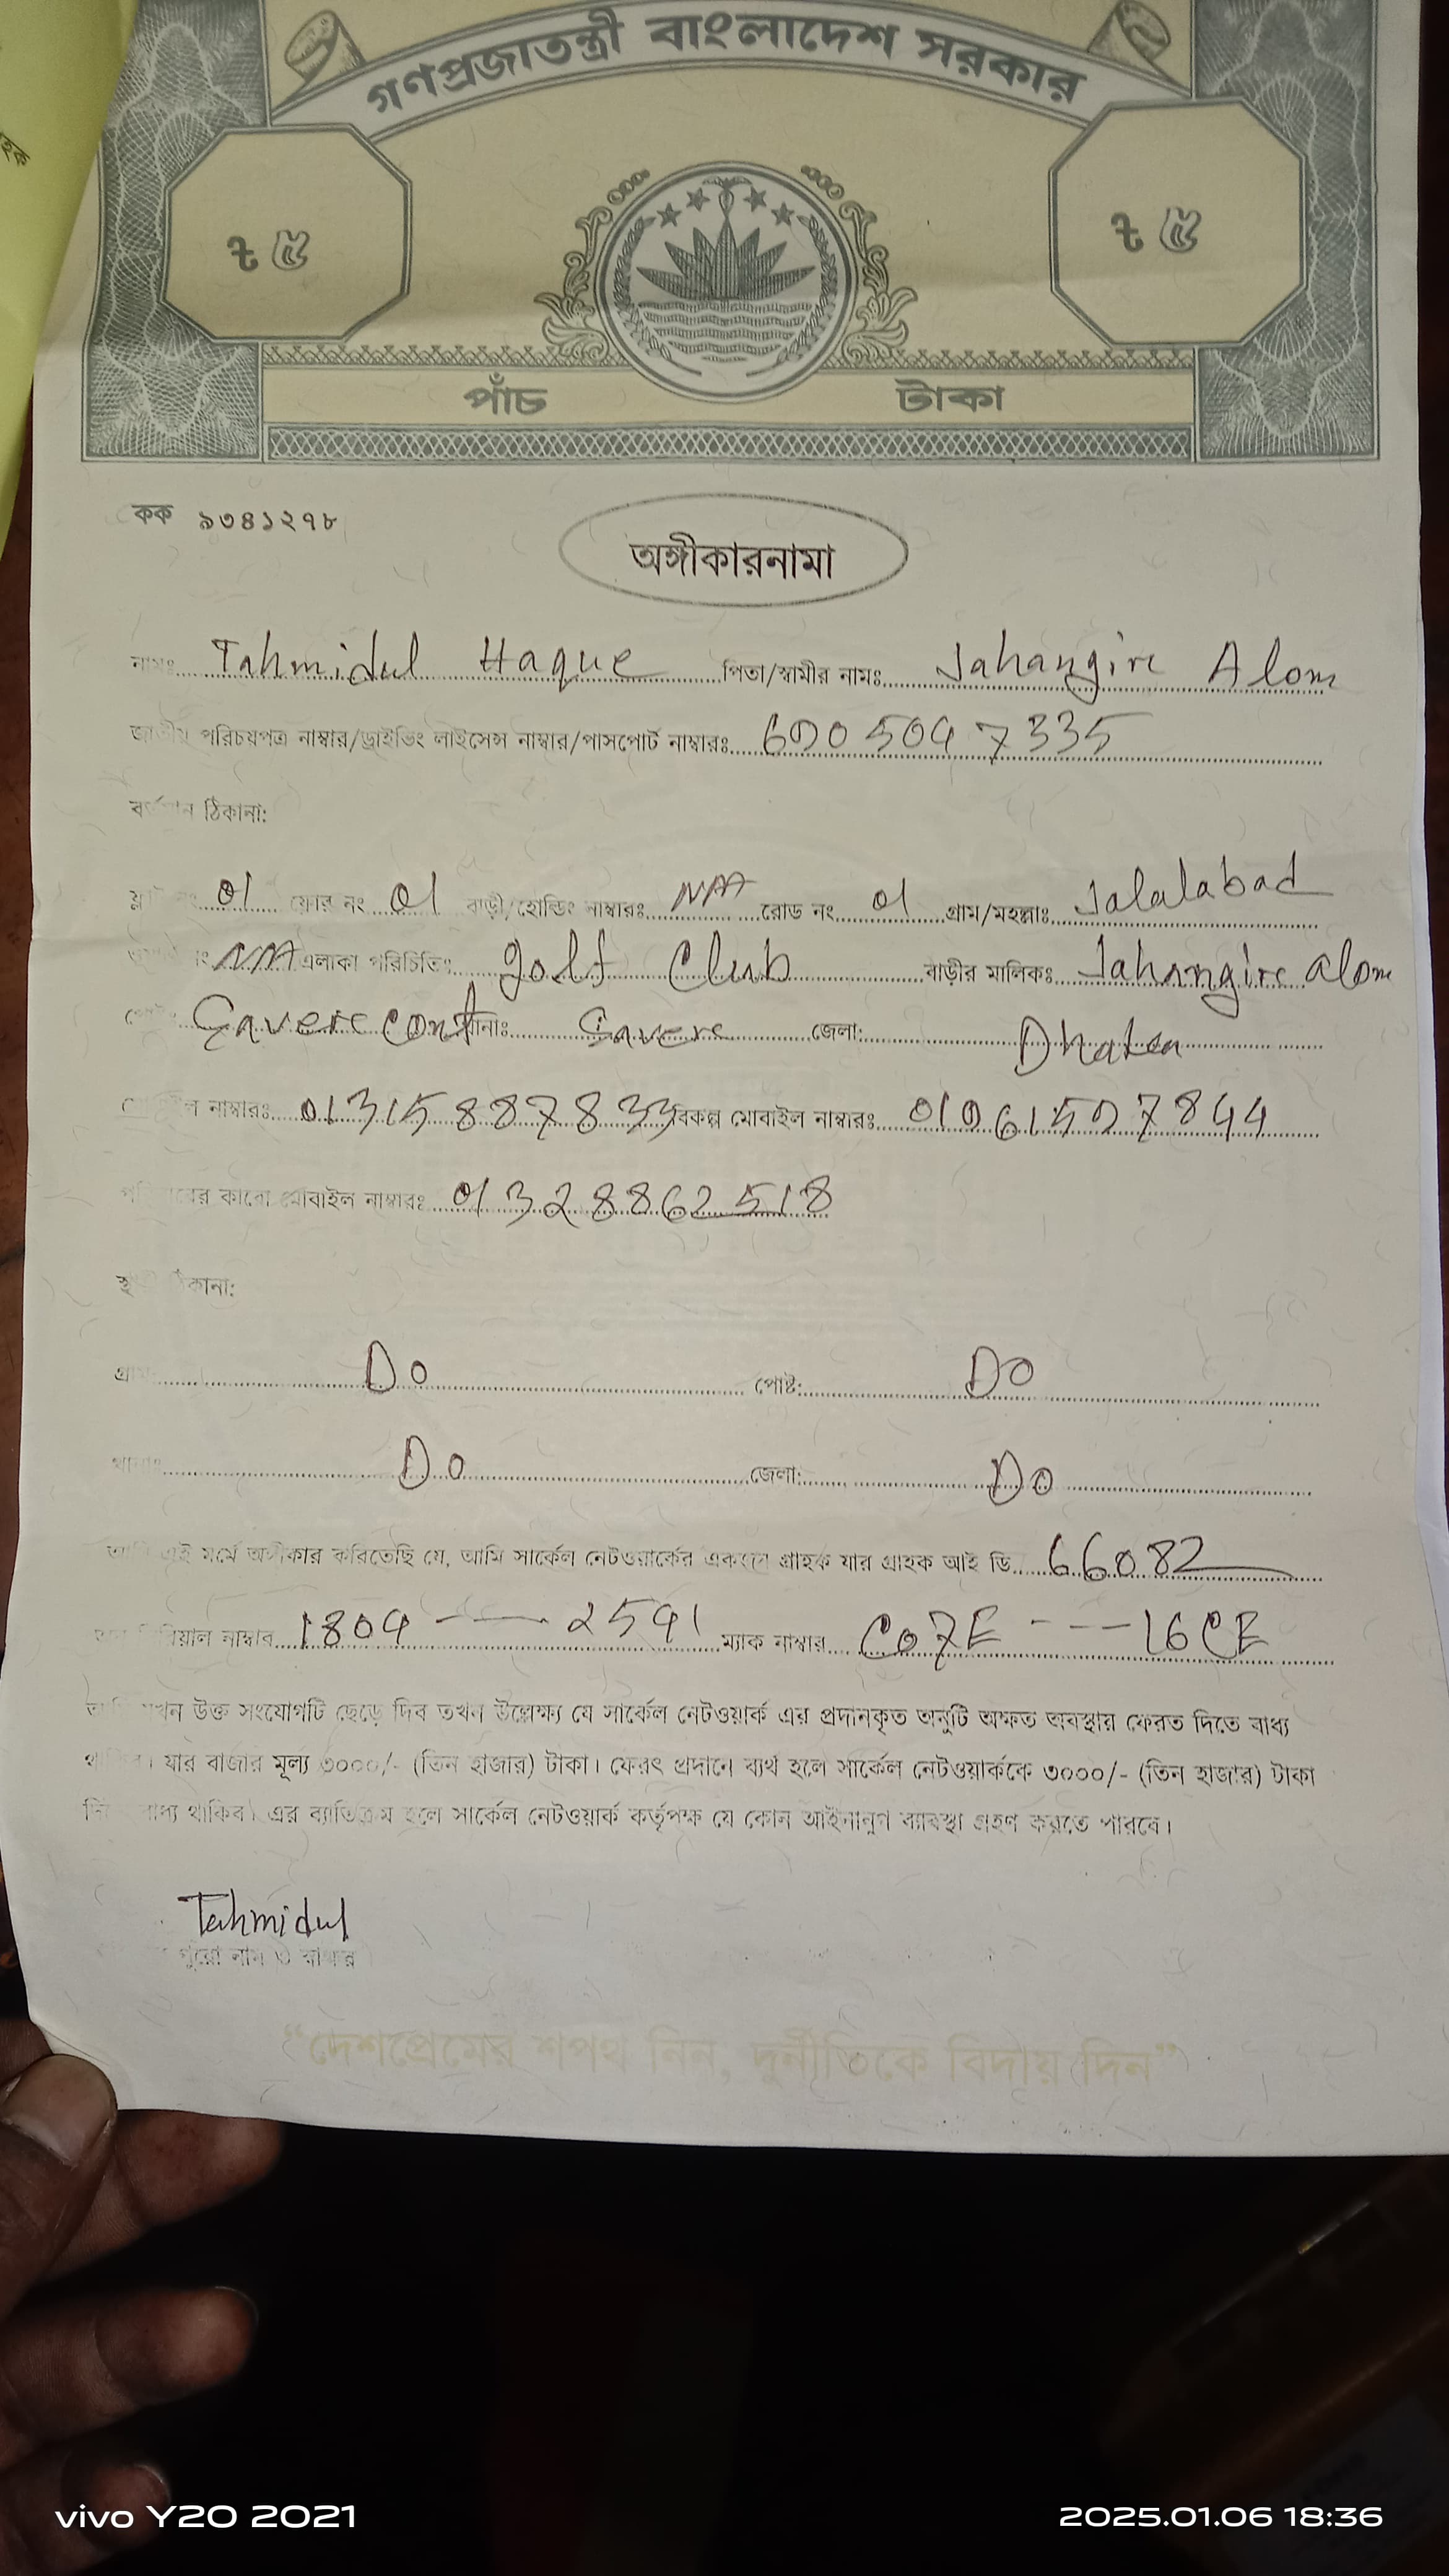 গণপ্রজাতন্ত্রী বাংলাদেশ সরকার
৳ ৫ ৳ ৫
পাঁচ টাকা
কক ৯৩৪১২৭৮
অঙ্গীকারনামা
নামঃ Tahmidul Haque পিতা/স্বামীর নামঃ Jahangire Alom
জাতীয় পরিচয়পত্র নাম্বার/ড্রাইভিং লাইসেন্স নাম্বার/পাসপোর্ট নাম্বারঃ
বর্তমান ঠিকানা:
01 ফ্লোর নং 01 বাড়ী/হোল্ডিং নাম্বারঃ N/A রোড নং 01 গ্রাম/মহল্লাঃ Jalalabad
N/A এলাকা পরিচিতিঃ golf Club বাড়ীর মালিকঃ Jahangire alom
Savere cont থানাঃ Savere জেলা: Dhaka
নাম্বারঃ 01315887833 বিকল্প মোবাইল নাম্বারঃ
কারো মোবাইল নাম্বারঃ 01328862518
ঠিকানা:
গ্রাম: Do পোষ্ট: Do
থানাঃ Do জেলা: Do
আমি এই মর্মে অঙ্গীকার করিতেছি যে, আমি সার্কেল নেটওয়ার্কের একজন গ্রাহক যার গ্রাহক আই ডি 66082
সিরিয়াল নাম্বার 1809 --- 2591 ম্যাক নাম্বার C07E --- 16CE
আমি যখন উক্ত সংযোগটি ছেড়ে দিব তখন উল্লেক্ষ্য যে সার্কেল নেটওয়ার্ক এর প্রদানকৃত অনুটি অক্ষত অবস্থায় ফেরত দিতে বাধ্য
থাকিব। যার বাজার মূল্য ৩০০০/- (তিন হাজার) টাকা। ফেরৎ প্রদানে ব্যর্থ হলে সার্কেল নেটওয়ার্ককে ৩০০০/- (তিন হাজার) টাকা
দিতে বাধ্য থাকিব। এর ব্যাতিক্রম হলে সার্কেল নেটওয়ার্ক কর্তৃপক্ষ যে কোন আইনানুগ ব্যাবস্থা গ্রহণ করতে পারবে।
Tahmidul
পুরো নাম ও স্বাক্ষর
“দেশপ্রেমের শপথ নিন, দুর্নীতিকে বিদায় দিন”
vivo Y20 2021 2025.01.06 18:36